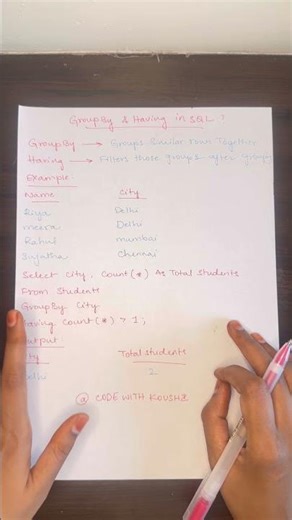 GroupBy & Having in SQL ?
GroupBy → Groups Similar rows Together
Having → Filters those groups after
Example:
Name City
Riya Delhi
meera Delhi
Rahul mumbai
Sujatha Chennai
Select City, Count(*) As Total Students
From Students
GroupBy City
Having Count(*) > 1;
Output
City Total Students
Delhi 2
@ CODE WITH